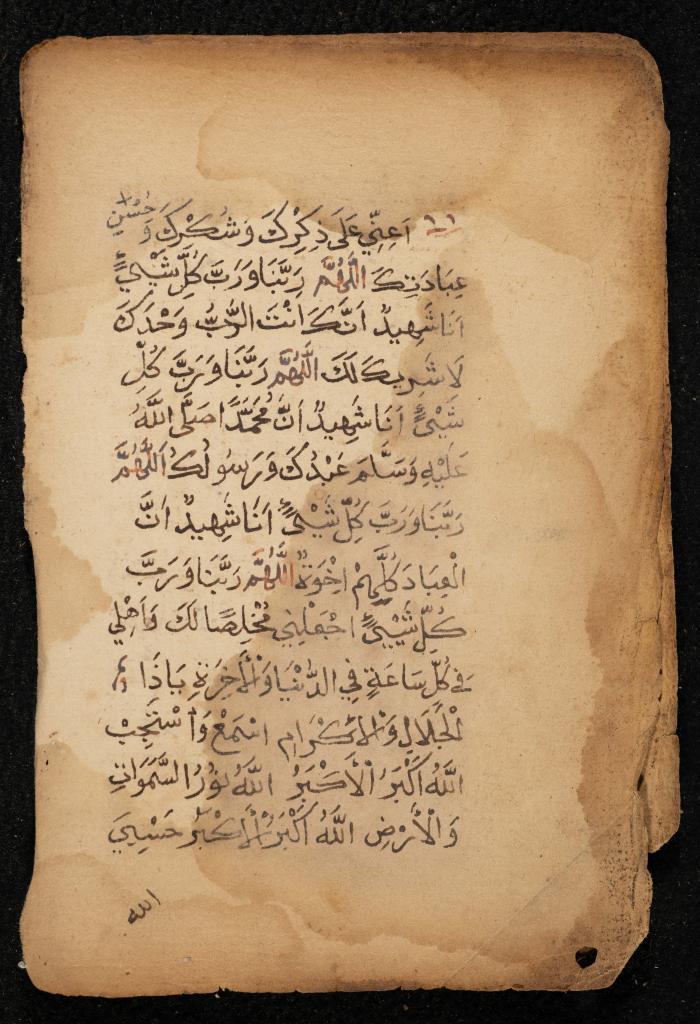 ١١ اَعِنِّي عَلَى ذِكْرِكَ وَشُكْرِكَ وَ حُسْنِ
عِبَادَتِكَ اللَّهُمَّ رَبَّنَا وَرَبَّ كُلِّ شَيْئٍ
اَنَا شَهِيدٌ اَنَّكَ اَنْتَ الرَّبُّ وَحْدَكَ
لَا شَرِيكَ لَكَ اللَّهُمَّ رَبَّنَا وَرَبَّ كُلِّ
شَيْئٍ اَنَا شَهِيدٌ اَنَّ مُحَمَّدًا صَلَّى اللَّهُ
عَلَيْهِ وَسَلَّمَ عَبْدُكَ وَرَسُولُكَ اَللَّهُمَّ
رَبَّنَا وَرَبَّ كُلِّ شَيْئٍ اَنَا شَهِيدٌ اَنَّ
الْعِبَادَ كُلَّهُمْ اِخْوَةٌ اللَّهُمَّ رَبَّنَا وَرَبَّ
كُلِّ شَيْئٍ اجْعَلْنِي مُخْلِصًا لَكَ وَاَهْلِي
فِي كُلِّ سَاعَةٍ فِي الدُّنْيَا وَالْأَخِرَةِ يَاذَا
الْجَلَالِ وَالْاِكْرَامِ اسْمَعْ وَاسْتَجِبْ
اللَّهُ اَكْبَرُ الْأَكْبَرُ اللَّهُ نُوْرُ السَّمَوَاتِ
وَالْأَرْضِ اللَّهُ اَكْبَرُ الْأَكْبَرُ حَسْبِيَ
الله